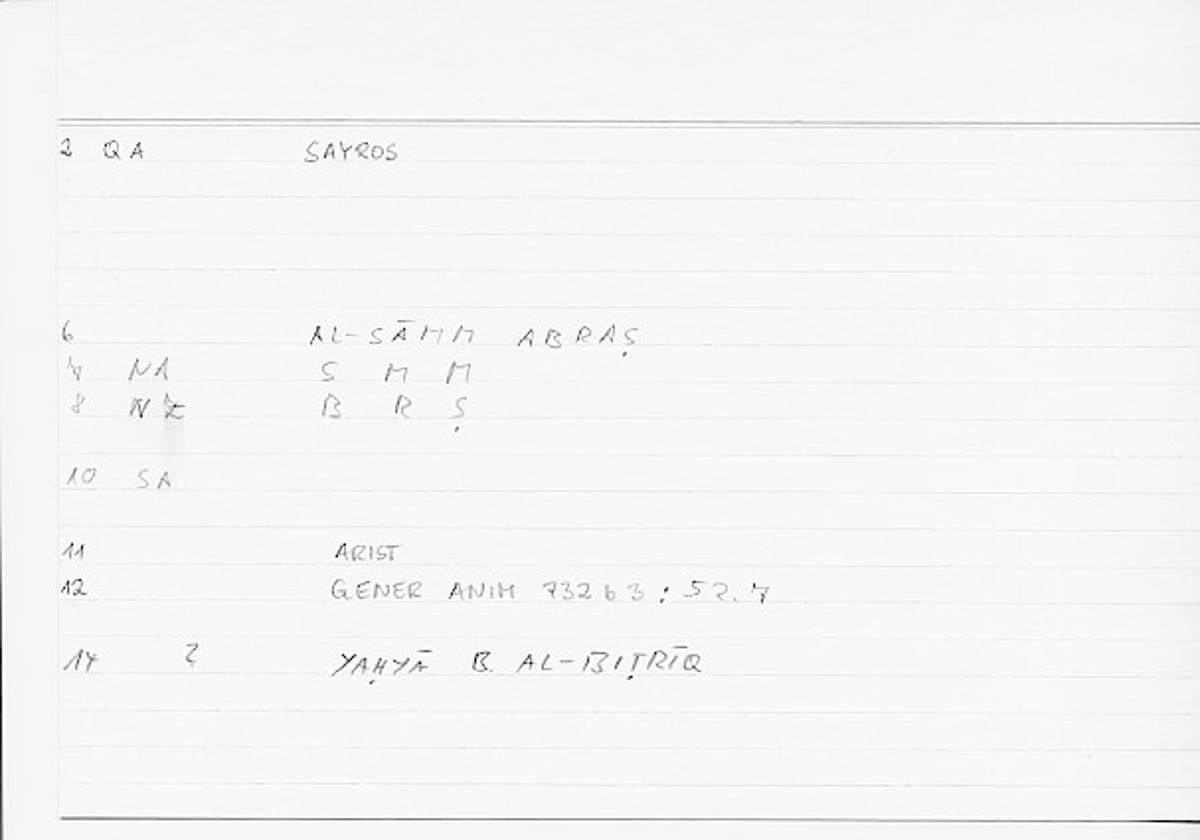 2 QA SAYROS
6 AL-SĀMM ABRAṢ
7 NA S M M
8 NZ B R Ṣ
10 SA
11 ARIST
12 GENER ANIM 732 b 3 : 52.7
14 ? YAḤYĀ B. AL-BIṬRĪQ